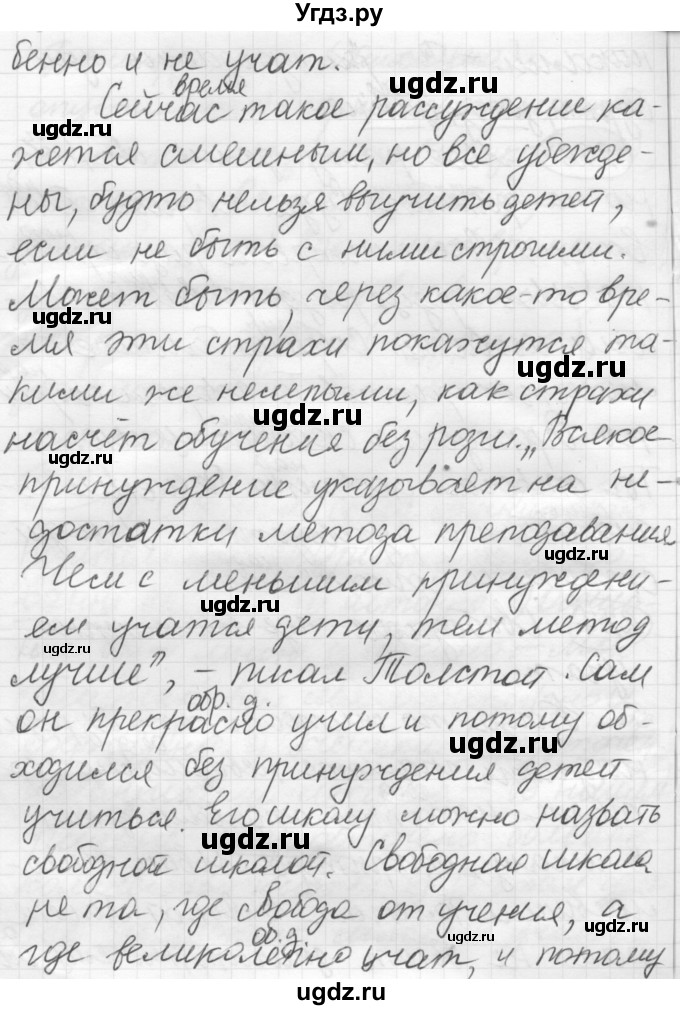 Угдз.ру
бенно и не учат.
время
Сейчас такое рассуждение ка-
ugdz.ru ugdz.ru
жется смешным, но все убежде-
ugdz.ru
ны, будто нельзя выучить детей,
если не быть с ними строгими.
ugdz.ru
Может быть, через какое-то вре-
ugdz.ru
мя эти страхи покажутся та-
ugdz.ru
кими же нелепыми, как страхи
ugdz.ru
насчёт обучения без розги. „Всякое
ugdz.ru ugdz.ru
принуждение указывает на не-
достатки метода преподавания.
ugdz.ru
Чем с меньшим принуждени-
ugdz.ru
ем учатся дети, тем метод
ugdz.ru
лучше", – писал Толстой. Сам
обр. д.
он прекрасно учил и потому об-
ugdz.ru
ходился без принуждения детей
учиться. Его школу можно назвать
ugdz.ru
свободной школой. Свободная школа
не та, где свобода от учения, а
ugdz.ru
об.д.
где великолепно учат, и потому
ugdz.ru
ugdz.ru